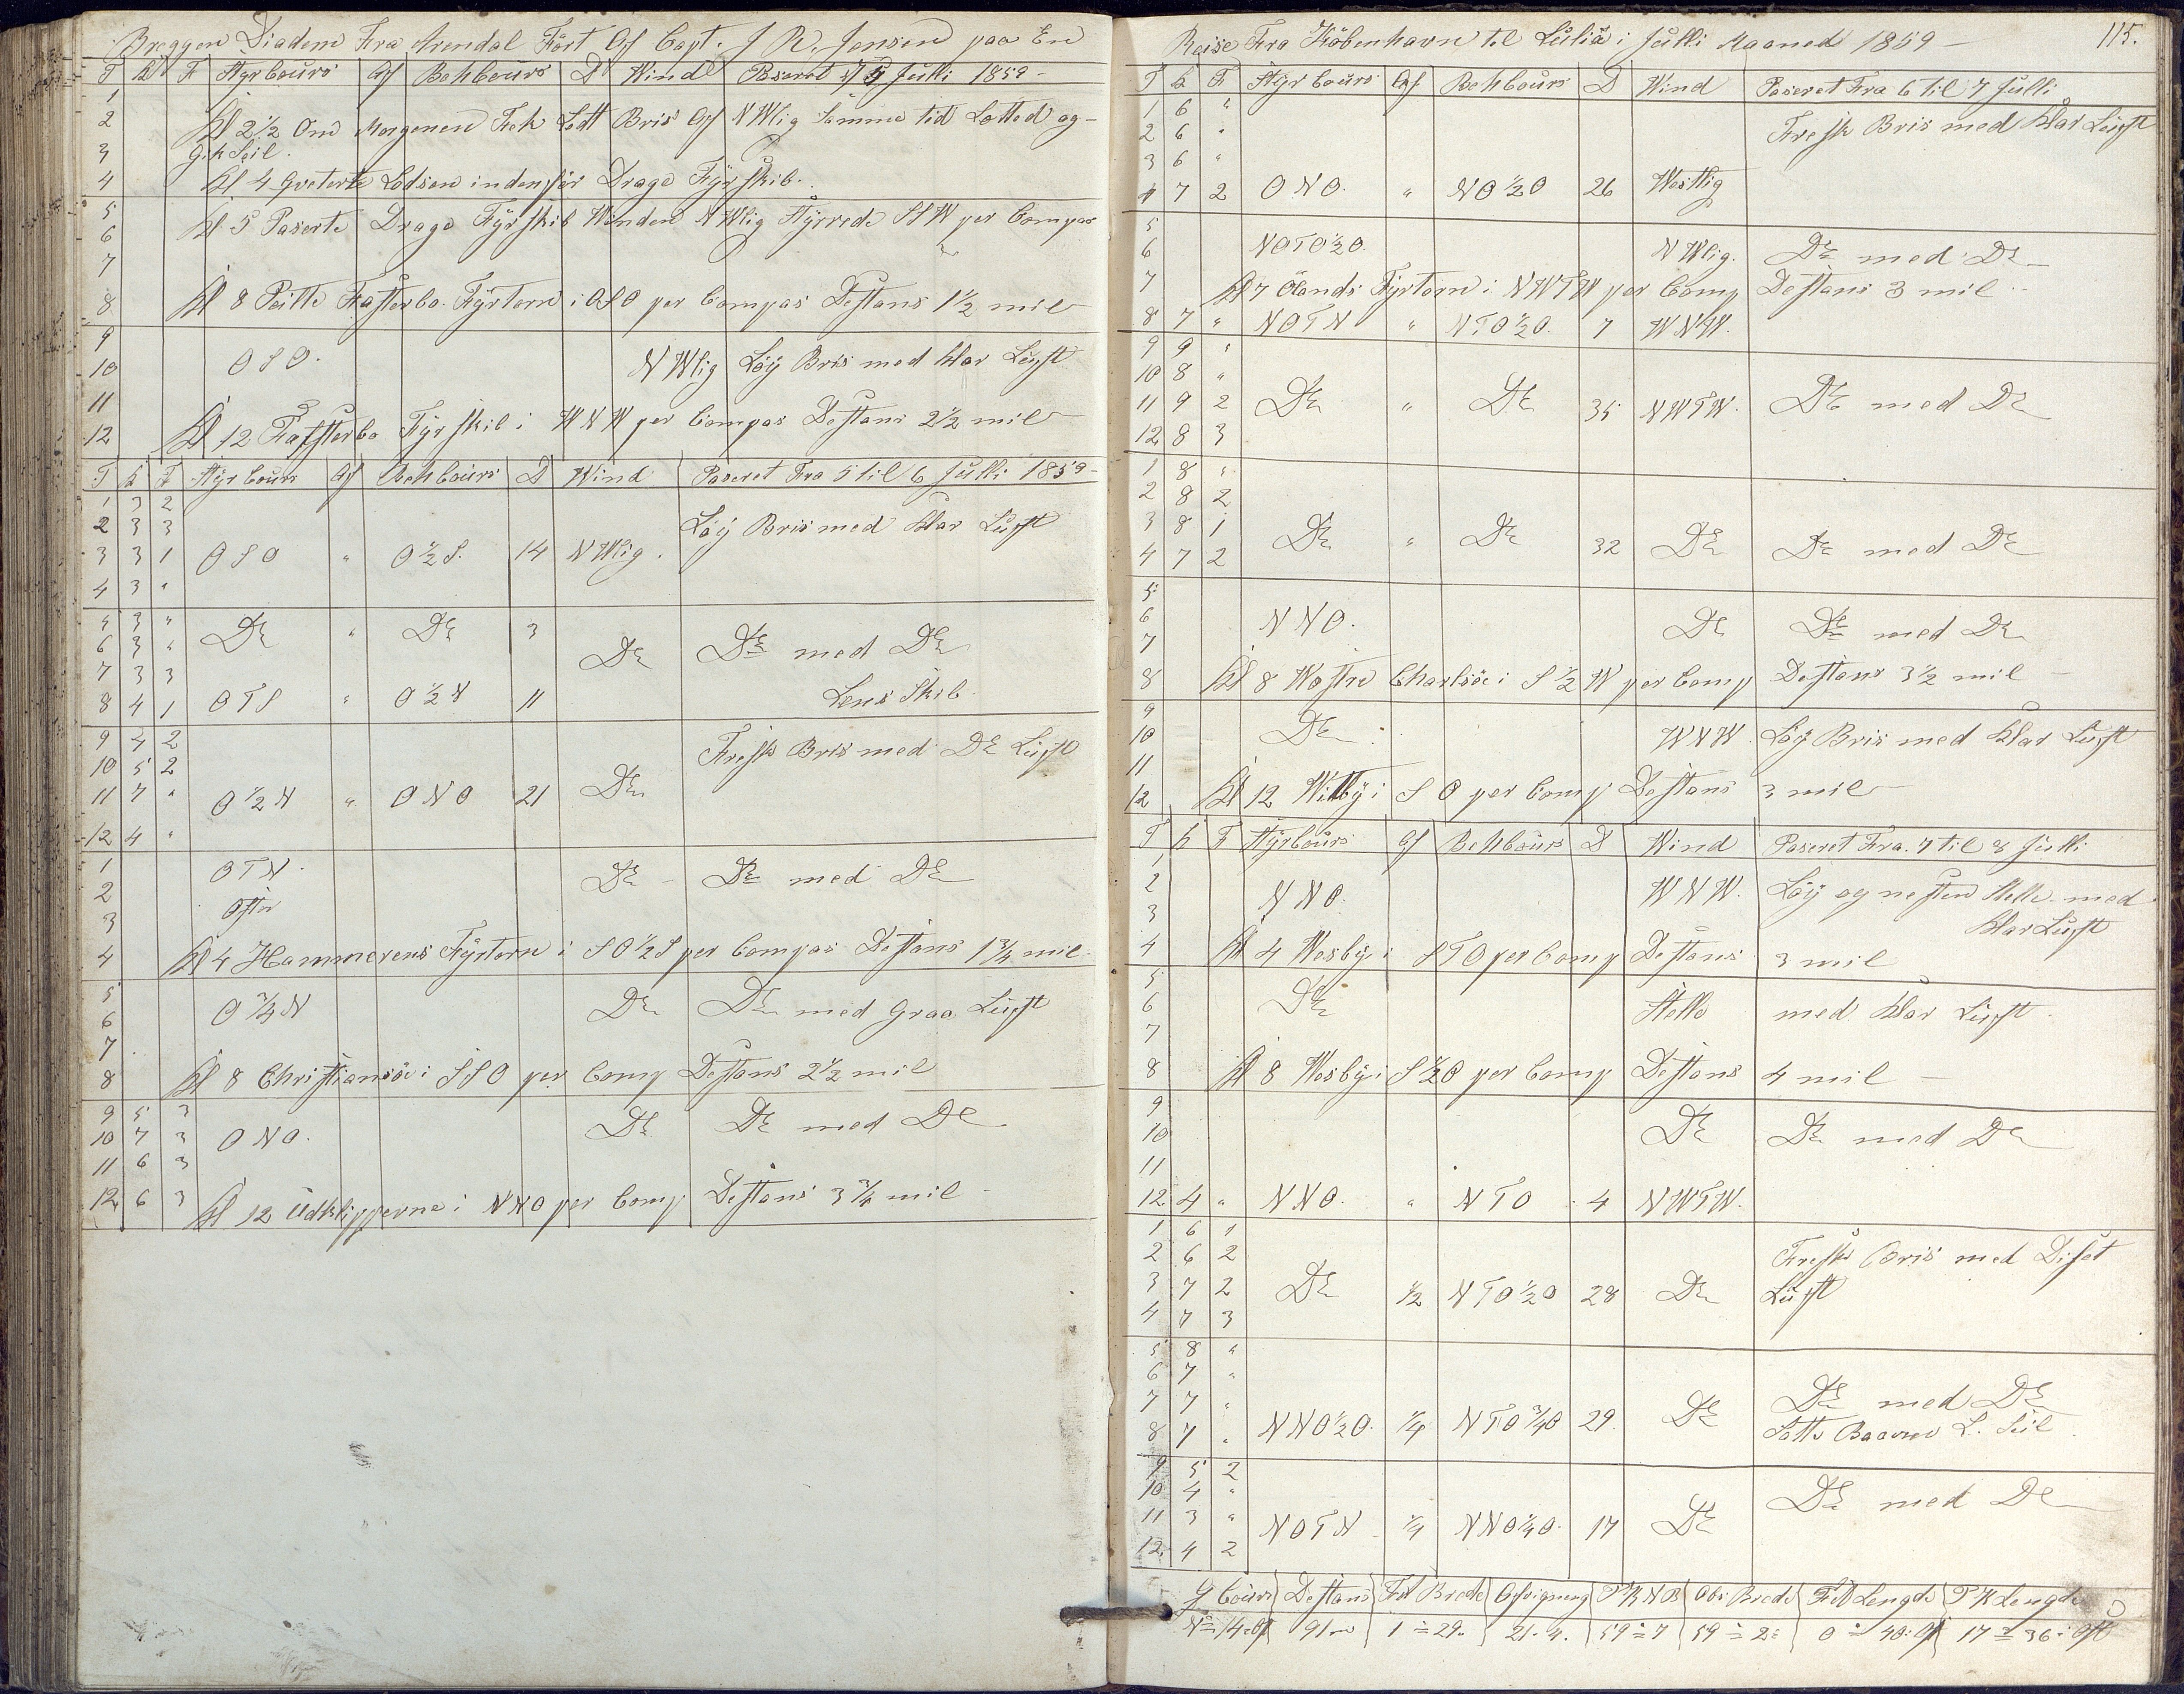 Breggen Diadem Fra Arendal Fört Af Capt. J R. Jensen paa En
T K F Styrbours Af Behbours D Wind Paseret 5 Julli 1859 -
1
2 Kl 2½ Om Morgenen Fek Lett Bris Af NWlig Samme tid Letted og -
3 gik Seil.
4 Kl 4 Qveterte Lodsen indenför Drage Fÿrskib.
5 Kl 5 Paserte Drage Fÿrskib Winden NWlig Stÿrrede SSW per Compas
6
7
8 Kl 8 Peitte Falsterbo Fÿrtorn i OSO per Compas Destans 1½ mil
9
10 OSO. NWlig Löÿ Bris med klar Luft
11
12 Kl 12 Falsterbo Fÿrskib i WNW per Compas Destans 2½ mil
T K F Styrbours Af Behbours D Wind Paseret Fra 5 til 6 Julli 1859 -
1 3 2
2 3 3 Löÿ Bris med klar Luft
3 3 1 OSO " O½S. 14 NWlig.
4 3 "
5 3 " Do " Do 3
6 3 " Do Do med Do
7 3 3
8 4 1 OTS " O½N 11 Lens Skib
9 4 2 Fresk Bris med Do Luft
10 5 2
11 7 " O½N " ONO 21 Do
12 4 "
1 OTN. Do - Do med Do
2 Ostn
3
4 Kl 4 Hammerens Fÿrtorn i SO½S per Compas Destans 1¾ mil
5
6 O¾N Do Do med Graa Luft
7
8 Kl 8 Christiansöe i SSO per Comp Destans 2½ mil
9 5 3
10 7 3 ONO. Do Do med Do
11 6 3
12 6 3 Kl 12 Udklipperne i NNO per Comp Destans 3¾ mil
Reise Fra Köbenhavn til Luliå i Julli Maaned 1859 - 115.
T K F Styrbours Af Behbours D Wind Paseret Fra 6 til 7 Julli
1 6 " Fresk Bris med klar Luft
2 6 "
3 6 "
4 7 2 ONO. " NO½O 26 Westlig
5
6 NOTO½O. NWlig. Do med Do
7 Kl 7 Ölands Fÿrtorn i NWTW per Comp Destans 3 mil
8 7 " NOTN " NTO½O. 7 WNW.
9 9 "
10 8 "
11 9 2 Do " Do 35 NWTW. Do med Do
12 8 3
1 8 "
2 8 2
3 8 1 Do " Do 32 Do Do med Do
4 7 2
5
6 NNO. Do Do med Do
7
8 Kl 8 Wastre Charlsöe i S½W per Comp Destans 3½ mil
9
10 Do WNW. Löÿ Bris med klar Luft
11
12 Kl 12 Wilbÿ i SO per Comp Destans 3 mil
T K F Styrbours Af Behbours D Wind Paseret Fra 7 til 8 Julli
1
2 NNO. WNW. Löÿ og nesten Stelle med
3 klar Luft
4 Kl 4 Wesbÿ i STO per Comp Destans 3 mil
5
6 Do Stelle med klar Luft.
7
8 Kl 8 Wesbÿ i S½O per Comp Destans 4 mil
9
10 Do Do med Do
11
12 4 " NNO. " NTO 4 NWTW.
1 6 1
2 6 2 Fresk Bris med Diset
3 7 2 Do ½ NTO½O 28 Do Luft
4 7 3
5 8 "
6 7 "
7 7 " Do Do med Do
8 7 " NNO½O. ¼ NTO¾O 29. Satte L. Seil
9 5 2
10 4 " Do med Do
11 3 " NOTN ¼ NNO¼O. 17 Do
12 4 2
G Cours Destans Fd Brede Afvigning P K N B Obs Brede Fd Lengde P K Lengde
N 14 Ost 91m 1 = 29. 21.4. 59 = 7 59 = 2 0 = 40. Ost 17 = 36. Ost